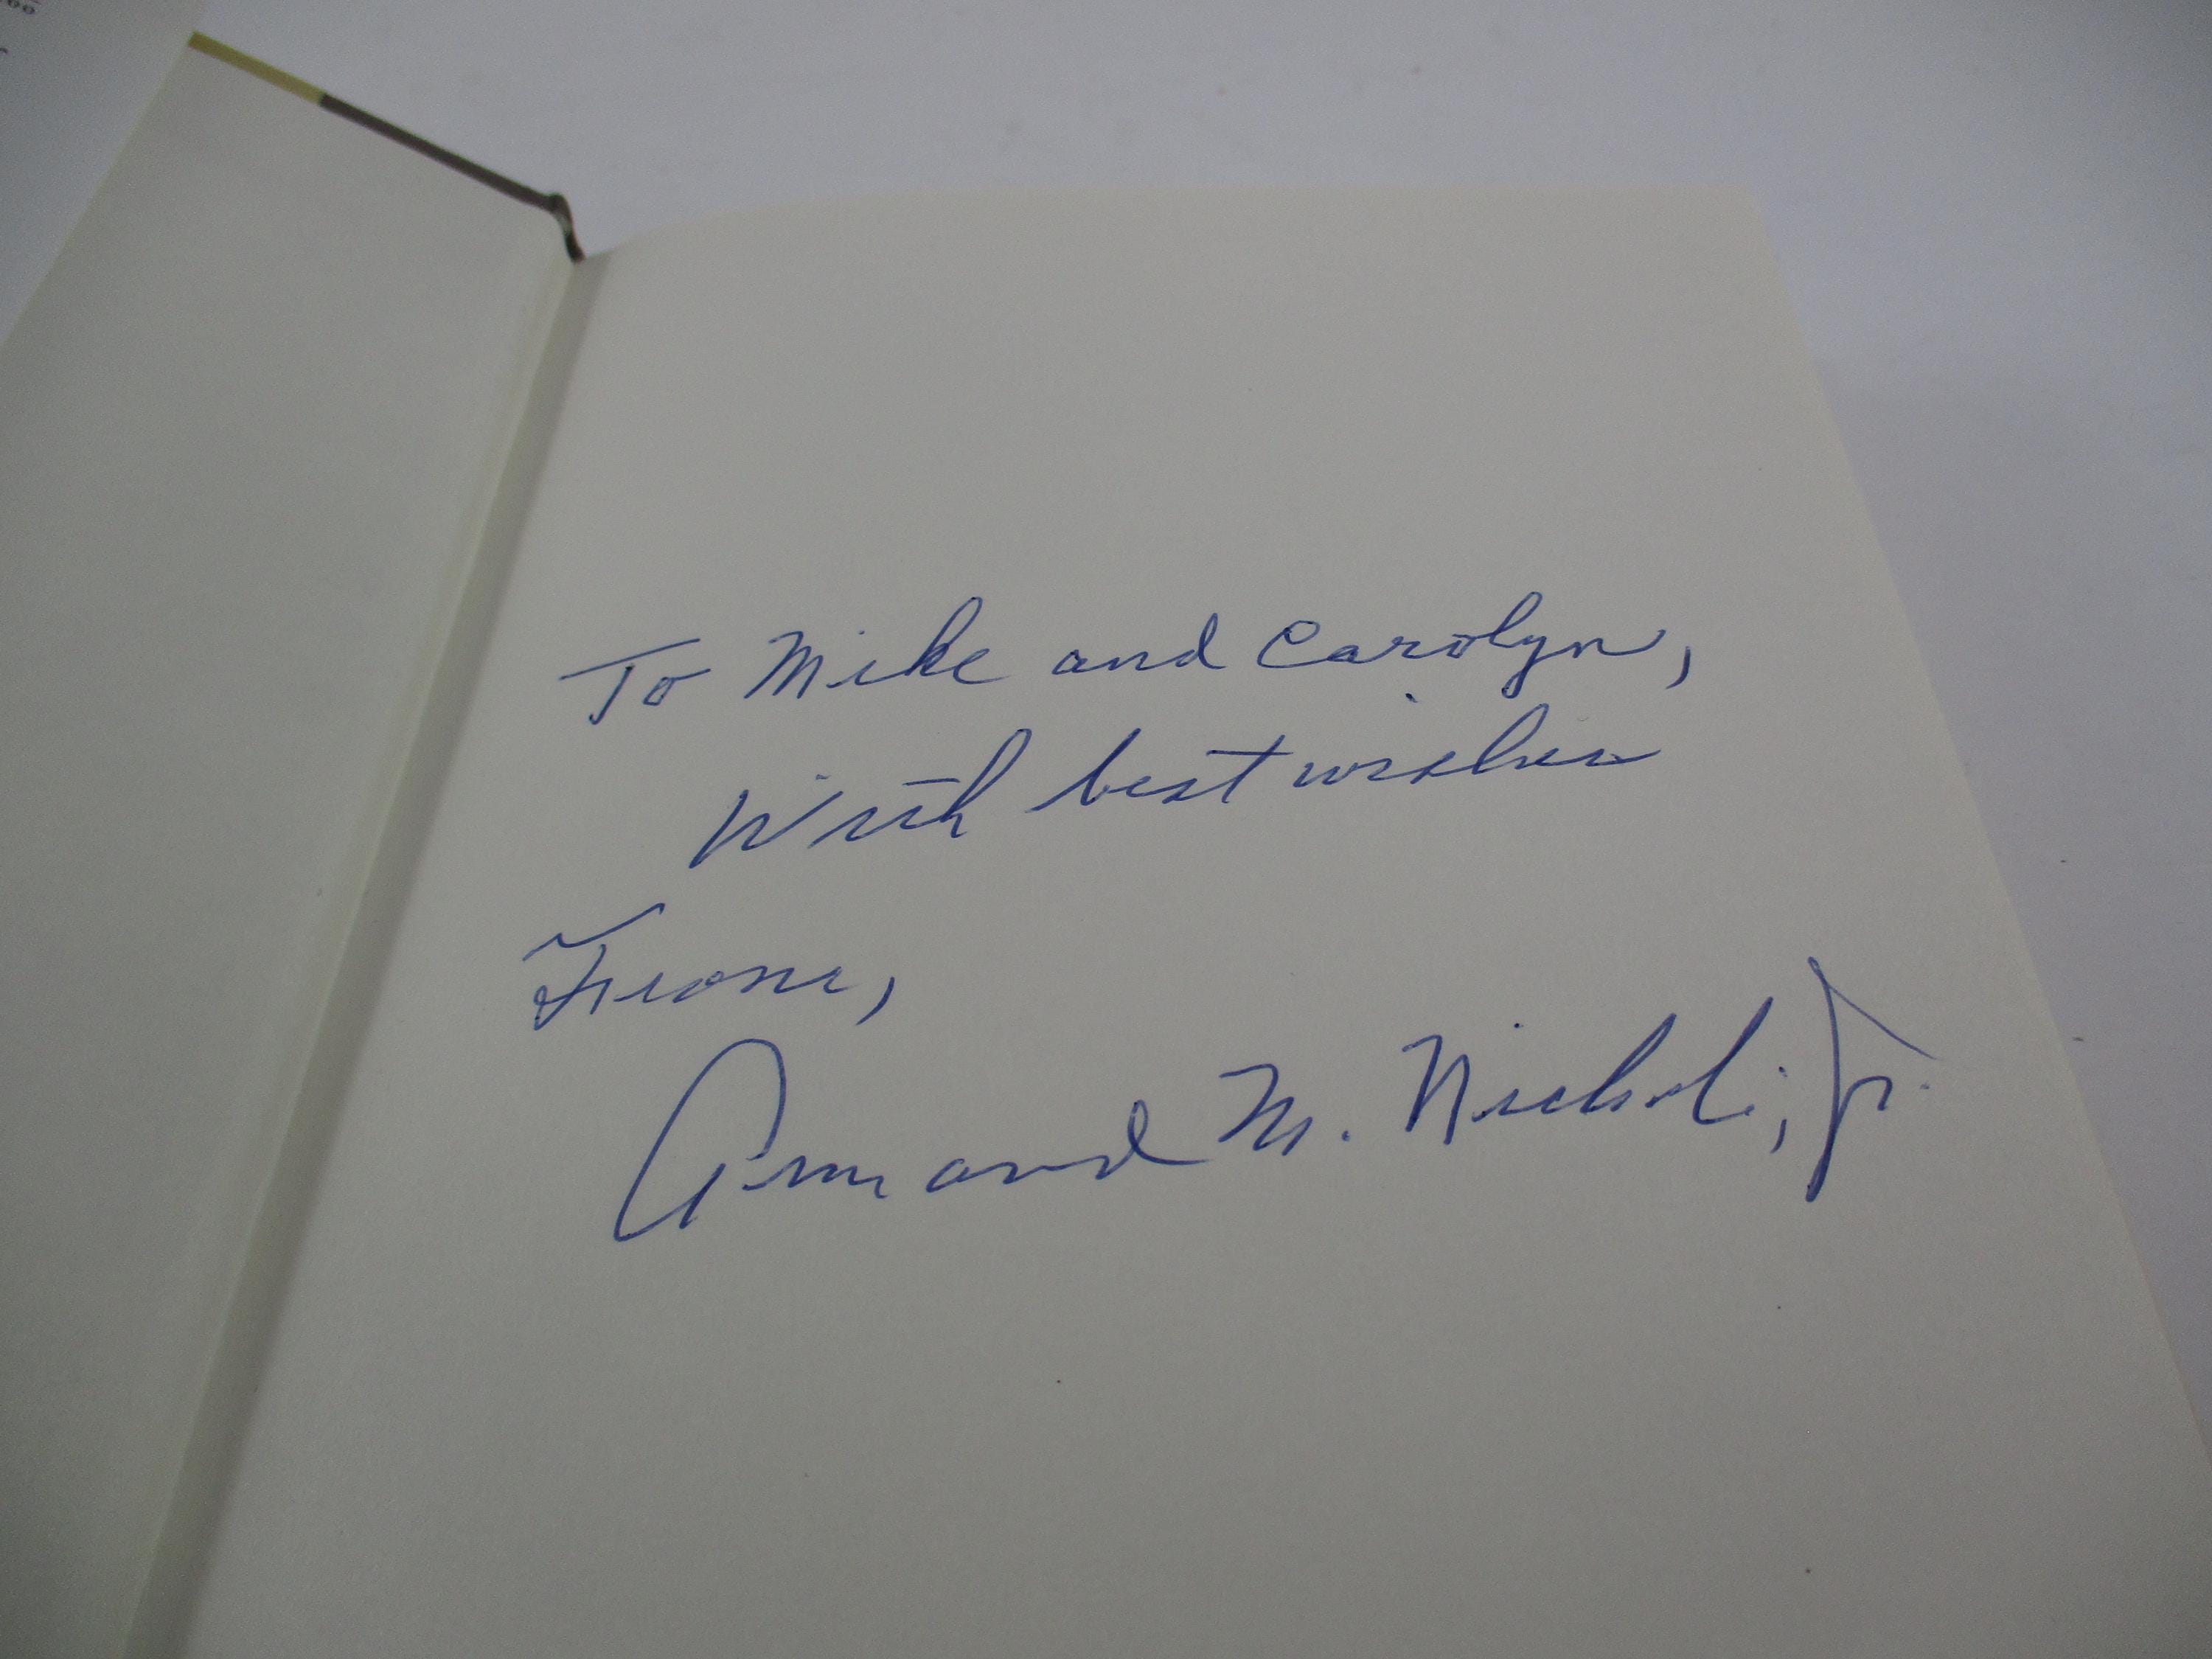 To Mike and Carolyn,
With best wishes
From,
Armand M. Nicholi, Jr.